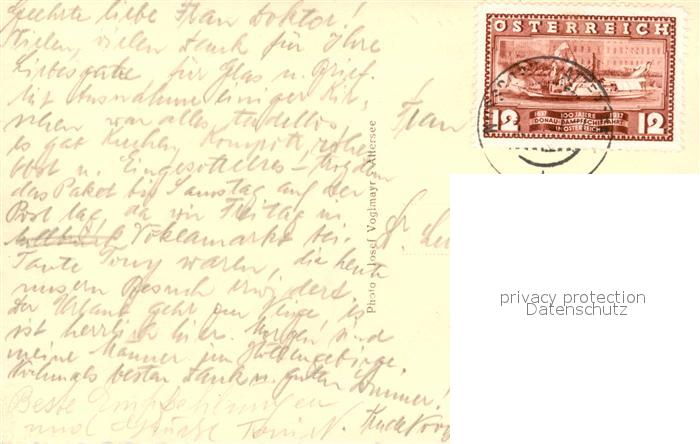 Geehrte liebe Frau Doktor!
Vielen, vielen Dank für Ihre
Liebesgabe für Glas u. Brief.
Mit Ausnahme einiger Kir-
schen war alles tadellos
es gab Kuchen, Kompott, rohes
Obst u. Eingesottenes – trotzdem
das Paket bis Samstag auf der
Post lag, da wir Freitag in
Vöklamarkt bei
Tante Tony waren, die heute
unsern Besuch erwidert.
Der Urlaub geht zur Neige, es
ist herrlich hier. Morgen sind
meine Männer im Höllengebirge.
Nochmals besten Dank u. guten
Beste Empfehlungen
und Grüsse
Frau
Dr.
Photo Josef Voglmayr Attersee
ÖSTERREICH
12 1837 100 JAHRE 1937 12
DONAU-DAMPFSCHIFFAHRT
IN ÖSTERREICH
privacy protection
Datenschutz